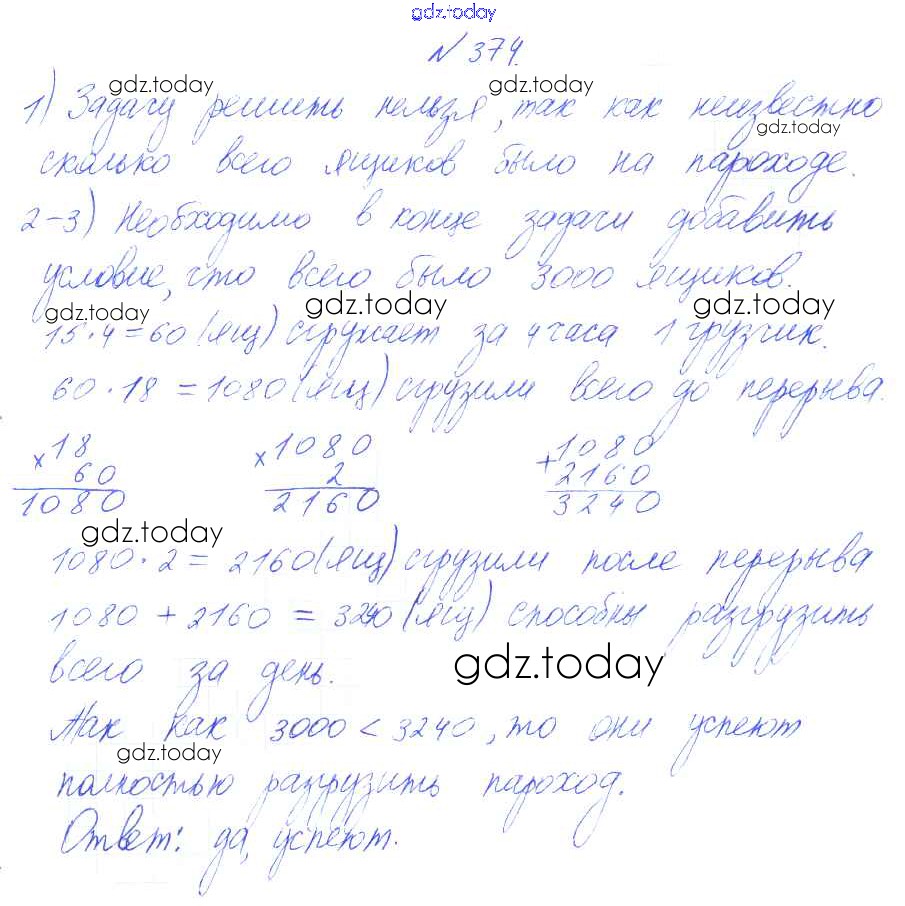 gdz.today
№ 374.
gdz.today
1) Задачу решить нельзя, так как неизвестно
gdz.today
сколько всего ящиков было на пароходе.
2-3) Необходимо в конце задачи добавить
условие, что всего было 3000 ящиков.
gdz.today gdz.today gdz.today
15·4=60 (ящ) сгружает за 4 часа 1 грузчик.
60·18=1080 (ящ) сгрузили всего до перерыва.
18 1080 1080
× 60 × 2 + 2160
1080 2160 3240
gdz.today
1080·2=2160 (ящ) сгрузили после перерыва
1080+2160=3240 (ящ) способны разгрузить
всего за день.
gdz.today
Так как 3000<3240, то они успеют
gdz.today
полностью разгрузить пароход.
Ответ: да, успеют.